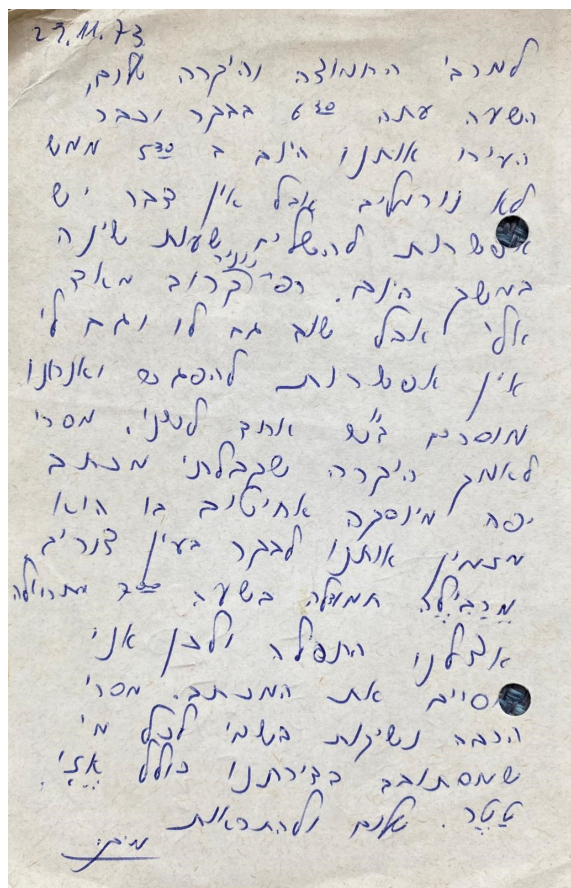 23.11.73
למרבי החמוצה והיקרה שלום,
השעה עתה 6³⁰ בבקר וכבר
העירו אותנו היום ב 5³⁰ ממש
לא נורמלים אבל אין דבר יש
אפשרות להשלים שעות שינה
במשך היום. רפי קרוב מאד
אלי אבל שוב גם לו וגם לי
אין אפשרות להפגש ואנחנו
מוסרים ד"ש אחד לשני. מסרי
לאמך היקרה שקבלתי מכתב
יפה מינוסקה אחיטוב בו הוא
מזמין אותנו לבקר בעין צורים.
מרבילה חמודה בשעה 7⁰⁰ מתחילה
אצלנו התפלה ולכן אני
מסיים את המכתב. מסרי
הרבה נשיקות בשמי לכל מי
שמסתובב בדירתנו כולל אֶזִי
טַטֶר. שלום ולהתראות